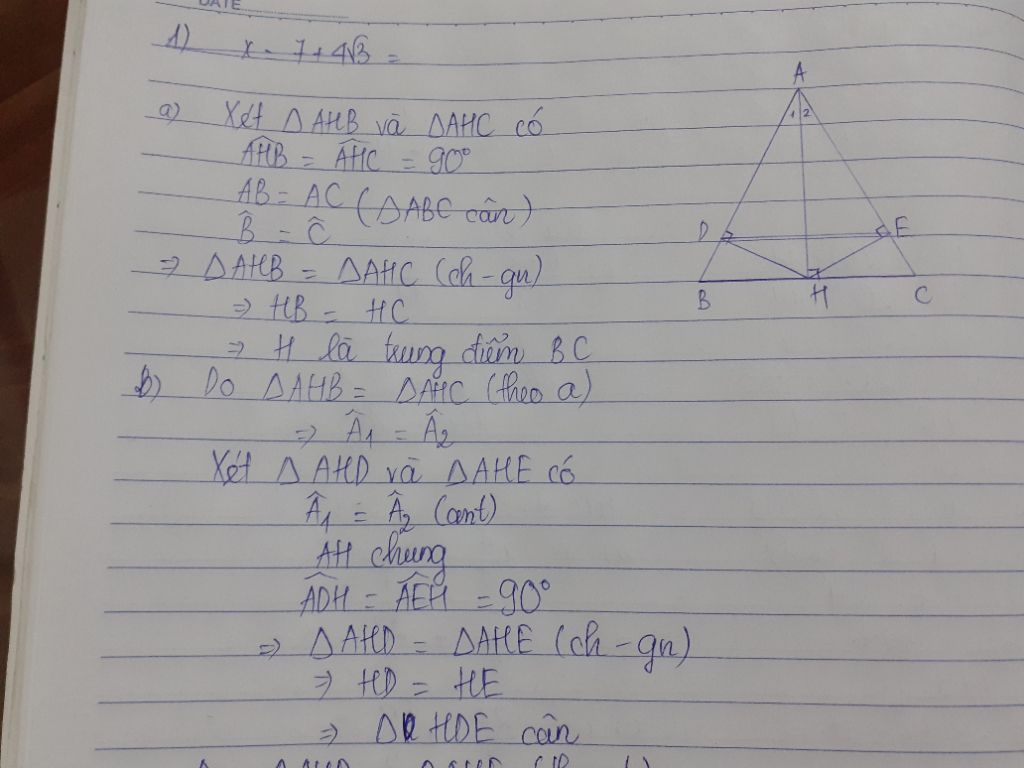 DATE
1) x = 7 + 4√3 =
a) Xét △AHB và △AHC có
A
1 2
D
E
B
H
C
AHB = AHC = 90°
AB = AC (△ABC cân)
B̂ = Ĉ
⇒ △AHB = △AHC (ch - gn)
⇒ HB = HC
⇒ H là trung điểm BC
b) Do △AHB = △AHC (theo a)
⇒ Â1 = Â2
Xét △AHD và △AHE có
Â1 = Â2 (cmt)
AH chung
ADH = AEH = 90°
⇒ △AHD = △AHE (ch - gn)
⇒ HD = HE
⇒ △ HDE cân